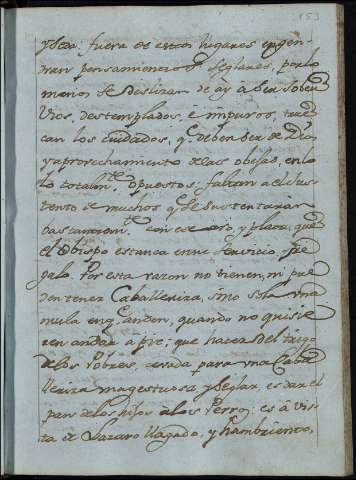 153
y seda: fuera de estos lugares engen
dran pensamientos seglares, por lo
menos se deslizan de ay a ser sober
vios, destemplados, è impuros, true
can los cuidados, q. deben ser de Dio
y aprovechamiento de las obejas, en lo
to totalm.te opuestos, faltan a el sus
tento de muchos q. se sustentarian
bastantem.te con ese oro, y plata, que
el Obispo estanca en su servicio, y re
galo. Por esta razon no tienen, ni pue
den tener Caballeriza, sino sola una
mula en q. anden, quando no quisie
ren andar a pie; que hacer del trigo
de los Pobres, cevada, para una Caba
lleriza magestuosa, y seglar, es dar el
pan de los hijos a los Perros: es à vis
ta de Lazaro llagado, y hambriento,